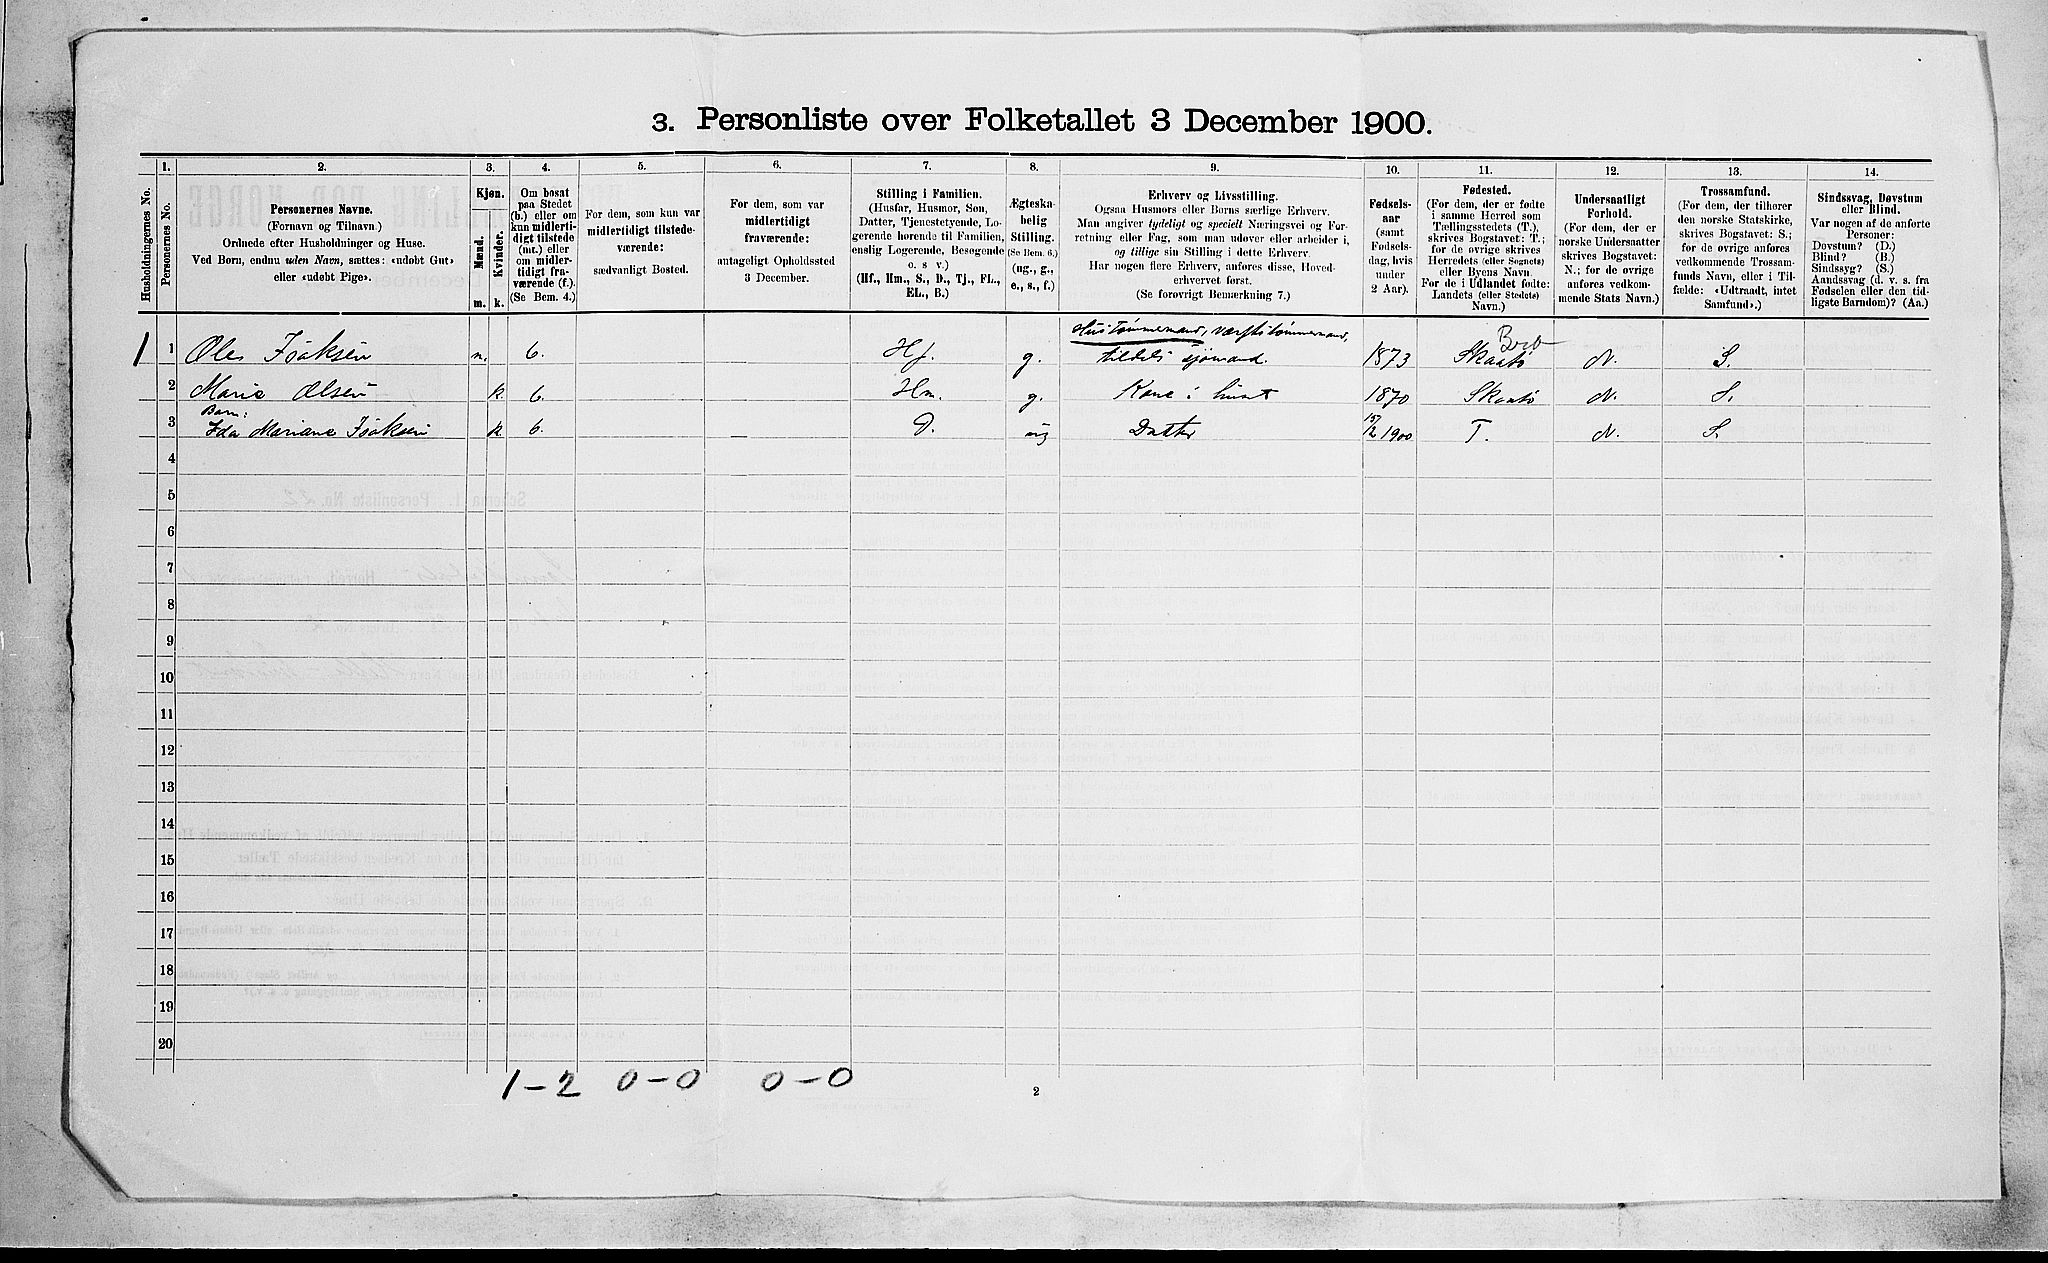 3. Personliste over Folketallet 3 December 1900.
1. 2. 3. 4. 5. 6. 7. 8. 9. 10. 11. 12. 13. 14.
Husholdningernes No.
Personernes No.
Personernes Navne.
(Fornavn og Tilnavn.)
Ordnede efter Husholdninger og Huse.
Ved Børn, endnu uden Navn, sættes: «udøbt Gut»
eller «udøbt Pige».
Kjøn.
Mænd.
Kvinder.
m. k.
Om bosat
paa Stedet
(b.) eller om
kun midlerti-
digt tilstede
(mt.) eller
om midler-
tidigt fra-
værende (f.).
(Se Bem. 4.)
For dem, som kun var
midlertidigt tilstede-
værende:
sædvanligt Bosted.
For dem, som var
midlertidigt
fraværende:
antageligt Opholdssted
3 December.
Stilling i Familien.
(Husfar, Husmor, Søn,
Datter, Tjenestetyende, Lo-
gerende hørende til Familien,
enslig Logerende, Besøgende
o. s v.)
(Hf., Hm., S., D., Tj., FL.,
EL., B.)
Ægteska-
belig
Stilling.
(Se Bem. 6.)
(ug., g.,
e., s., f.)
Erhverv og Livsstilling.
Ogsaa Husmors eller Børns særlige Erhverv.
Man angiver tydeligt og specielt Næringsvei og For-
retning eller Fag, som man udøver eller arbeider i,
og tillige sin Stilling i dette Erhverv.
Har nogen flere Erhverv, anføres disse, Hoved-
erhvervet først.
(Se forøvrigt Bemærkning 7.)
Fødsels-
aar
(samt
Fødsels-
dag, hvis
under
2 Aar).
Fødested.
(For dem, der er fødte
i samme Herred som
Tællingsstedets (T.),
skrives Bogstavet: T.;
for de øvrige skrives
Herredets (eller Sognets)
eller Byens Navn.
For de i Udlandet fødte:
Landets (eller Stedets)
Navn.)
Undersaatligt
Forhold.
(For dem, der er
norske Undersaatter
skrives Bogstavet:
N.; for de øvrige
anføres vedkom-
mende Stats Navn.)
Trossamfund.
(For dem, der tilhører
den norske Statskirke,
skrives Bogstavet: S.;
for de øvrige anføres
vedkommende Trossam-
funds Navn, eller i Til-
fælde: «Udtraadt, intet
Samfund».)
Sindssvag, Døvstum
eller Blind.
Var nogen af de anførte
Personer:
Døvstum? (D.)
Blind? (B.)
Sindssyg? (S.)
Aandssvag (d. v. s. fra
Fødselen eller den tid-
ligste Barndom)? (Aa.)
Hustømmermand, værftstømmermand,
1 1 Ole Isaksen m. b. Hf. g. tildels sjømand. 1873 Skaatø N. S.
2 Marie Olsen k. b. Hm. g. Kone i huset 1870 Skaatø N. S.
Barn:
3 Ida Mariane Isaksen k b. – D. ug Datter 15/2 1900 T. N. S.
4
5
6
7
8
9
10
11
12
13
14
15
16
17
18
19
20
1 – 2 0 – 0 0 – 0
2